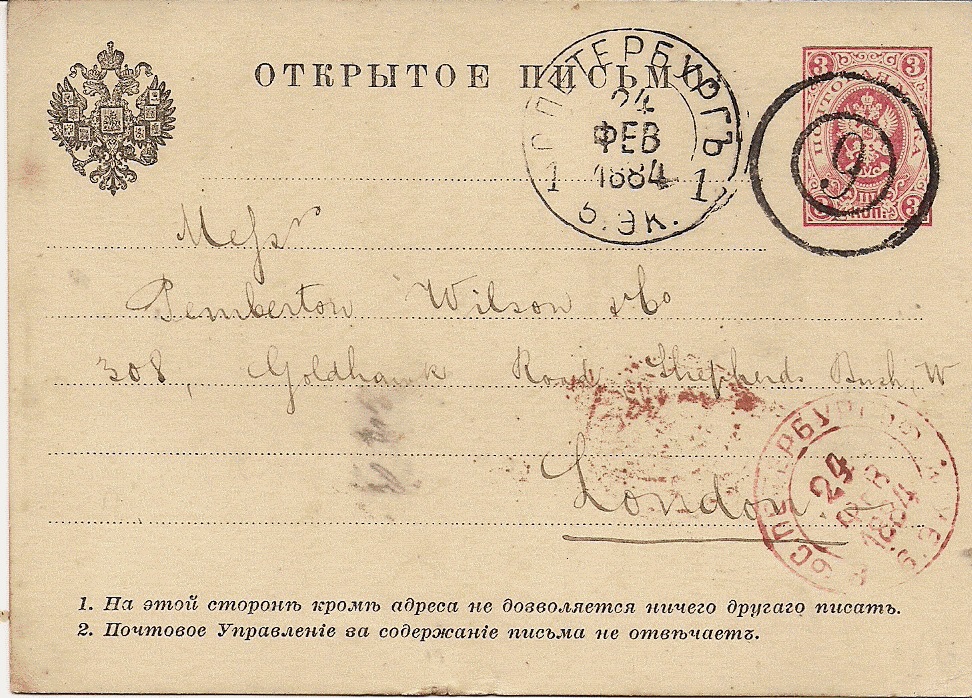 ОТКРЫТОЕ ПИСЬМО
С.ПЕТЕРБУРГЪ
24
ФЕВ
1884
1 1
6. ЭК.
3 3
ПОЧТОВАЯ МАРКА
9
Messrs
Pemberton Wilson & Co
308, Goldhawk Road Shepherds Bush, W
London
С.ПЕТЕРБУРГЪ
24
ФЕВ
1884
1. На этой сторонѣ кромѣ адреса не дозволяется ничего другаго писать.
2. Почтовое Управленіе за содержаніе письма не отвѣчаетъ.